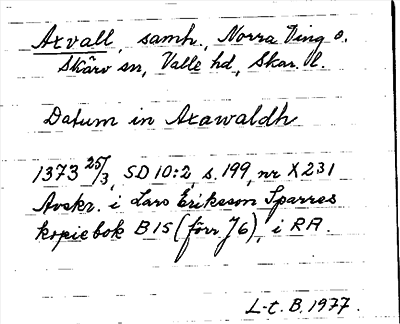 Axvall, samh., Norra Ving o.
Skärv sn, Valle hd, Skar. l.
Datum in Axawaldh
1373 25/3, SD 10:2, s. 199, nr X 231
Avskr. i Lars Eriksson Sparres
kopiebok B 15 (förr J 6), i RA.
L-t. B. 1977.